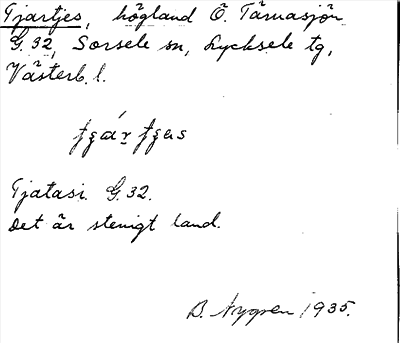 Tjartjes, högland Ö. Tärnasjön
G. 32, Sorsele sn, Lycksele tg,
Västerb. l.
Tjatasi. G. 32.
Det är stenigt land.
B. Nygren 1935.